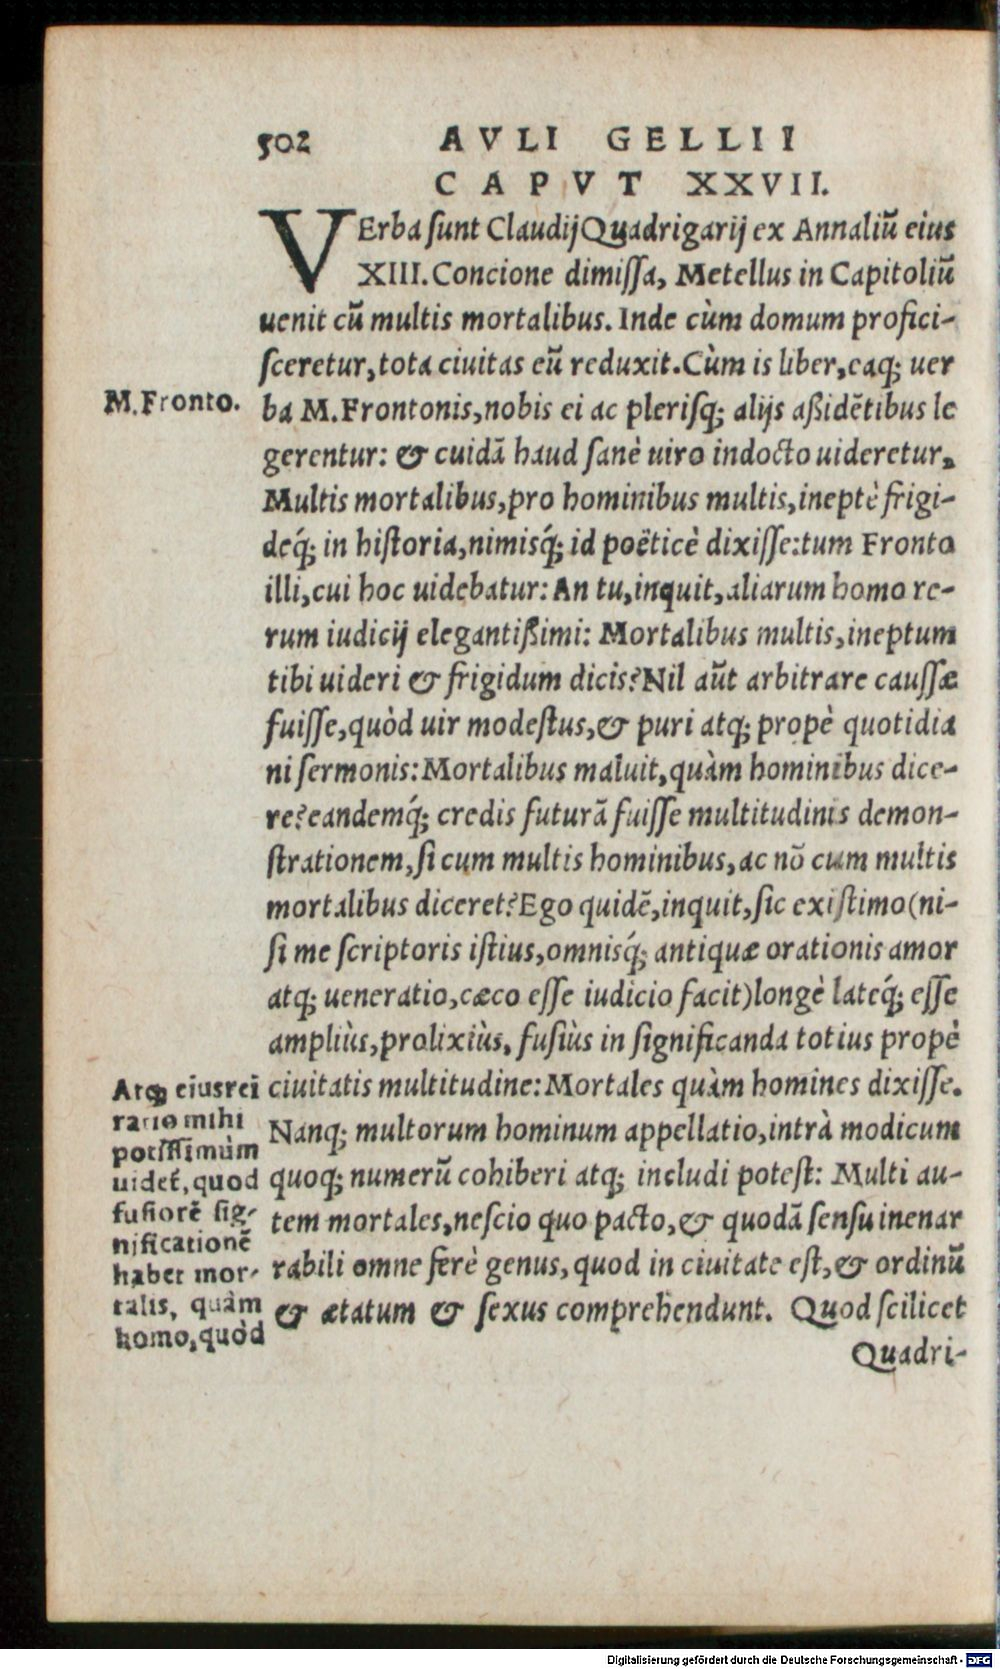 502 AVLI GELLII
CAPVT XXVII.
VErba sunt Claudij Quadrigarij ex Annaliū eius
XIII. Concione dimissa, Metellus in Capitoliū
uenit cū multis mortalibus. Inde cùm domum profici-
sceretur, tota ciuitas eū reduxit. Cùm is liber, eaq; uer
M.Fronto.
ba M. Frontonis, nobis ei ac plerisq; alijs aßidētibus le
gerentur: & cuidā haud sanè uiro indocto uideretur,
Multis mortalibus, pro hominibus multis, ineptè frigi-
deq́; in historia, nimisq́; id poëticè dixisse: tum Fronto
illi, cui hoc uidebatur: An tu, inquit, aliarum homo re-
rum iudicij elegantißimi: Mortalibus multis, ineptum
tibi uideri & frigidum dicis? Nil aūt arbitrare caussæ
fuisse, quòd uir modestus, & puri atq; propè quotidia
ni sermonis: Mortalibus maluit, quàm hominibus dice-
re? eandemq́; credis futurā fuisse multitudinis demon-
strationem, si cum multis hominibus, ac nō cum multis
mortalibus diceret? Ego quidē, inquit, sic existimo (ni-
si me scriptoris istius, omnisq́; antiquæ orationis amor
atq; ueneratio, cæco esse iudicio facit) longè lateq́; esse
ampliùs, prolixiùs, fusiùs in significanda totius propè
ciuitatis multitudine: Mortales quàm homines dixisse.
Nanq; multorum hominum appellatio, intrà modicum
quoq; numerū cohiberi atq; includi potest: Multi au-
tem mortales, nescio quo pacto, & quodā sensu inenar
rabili omne ferè genus, quod in ciuitate est, & ordinū
& ætatum & sexus comprehendunt. Quod scilicet
Quadri-
Atq; eiusrei
ratio mihi
potissimùm
uidet́, quod
fusiorē sig-
nificationē
habet mor-
talis, quàm
homo, quòd
Digitalisierung gefördert durch die Deutsche Forschungsgemeinschaft - DFG